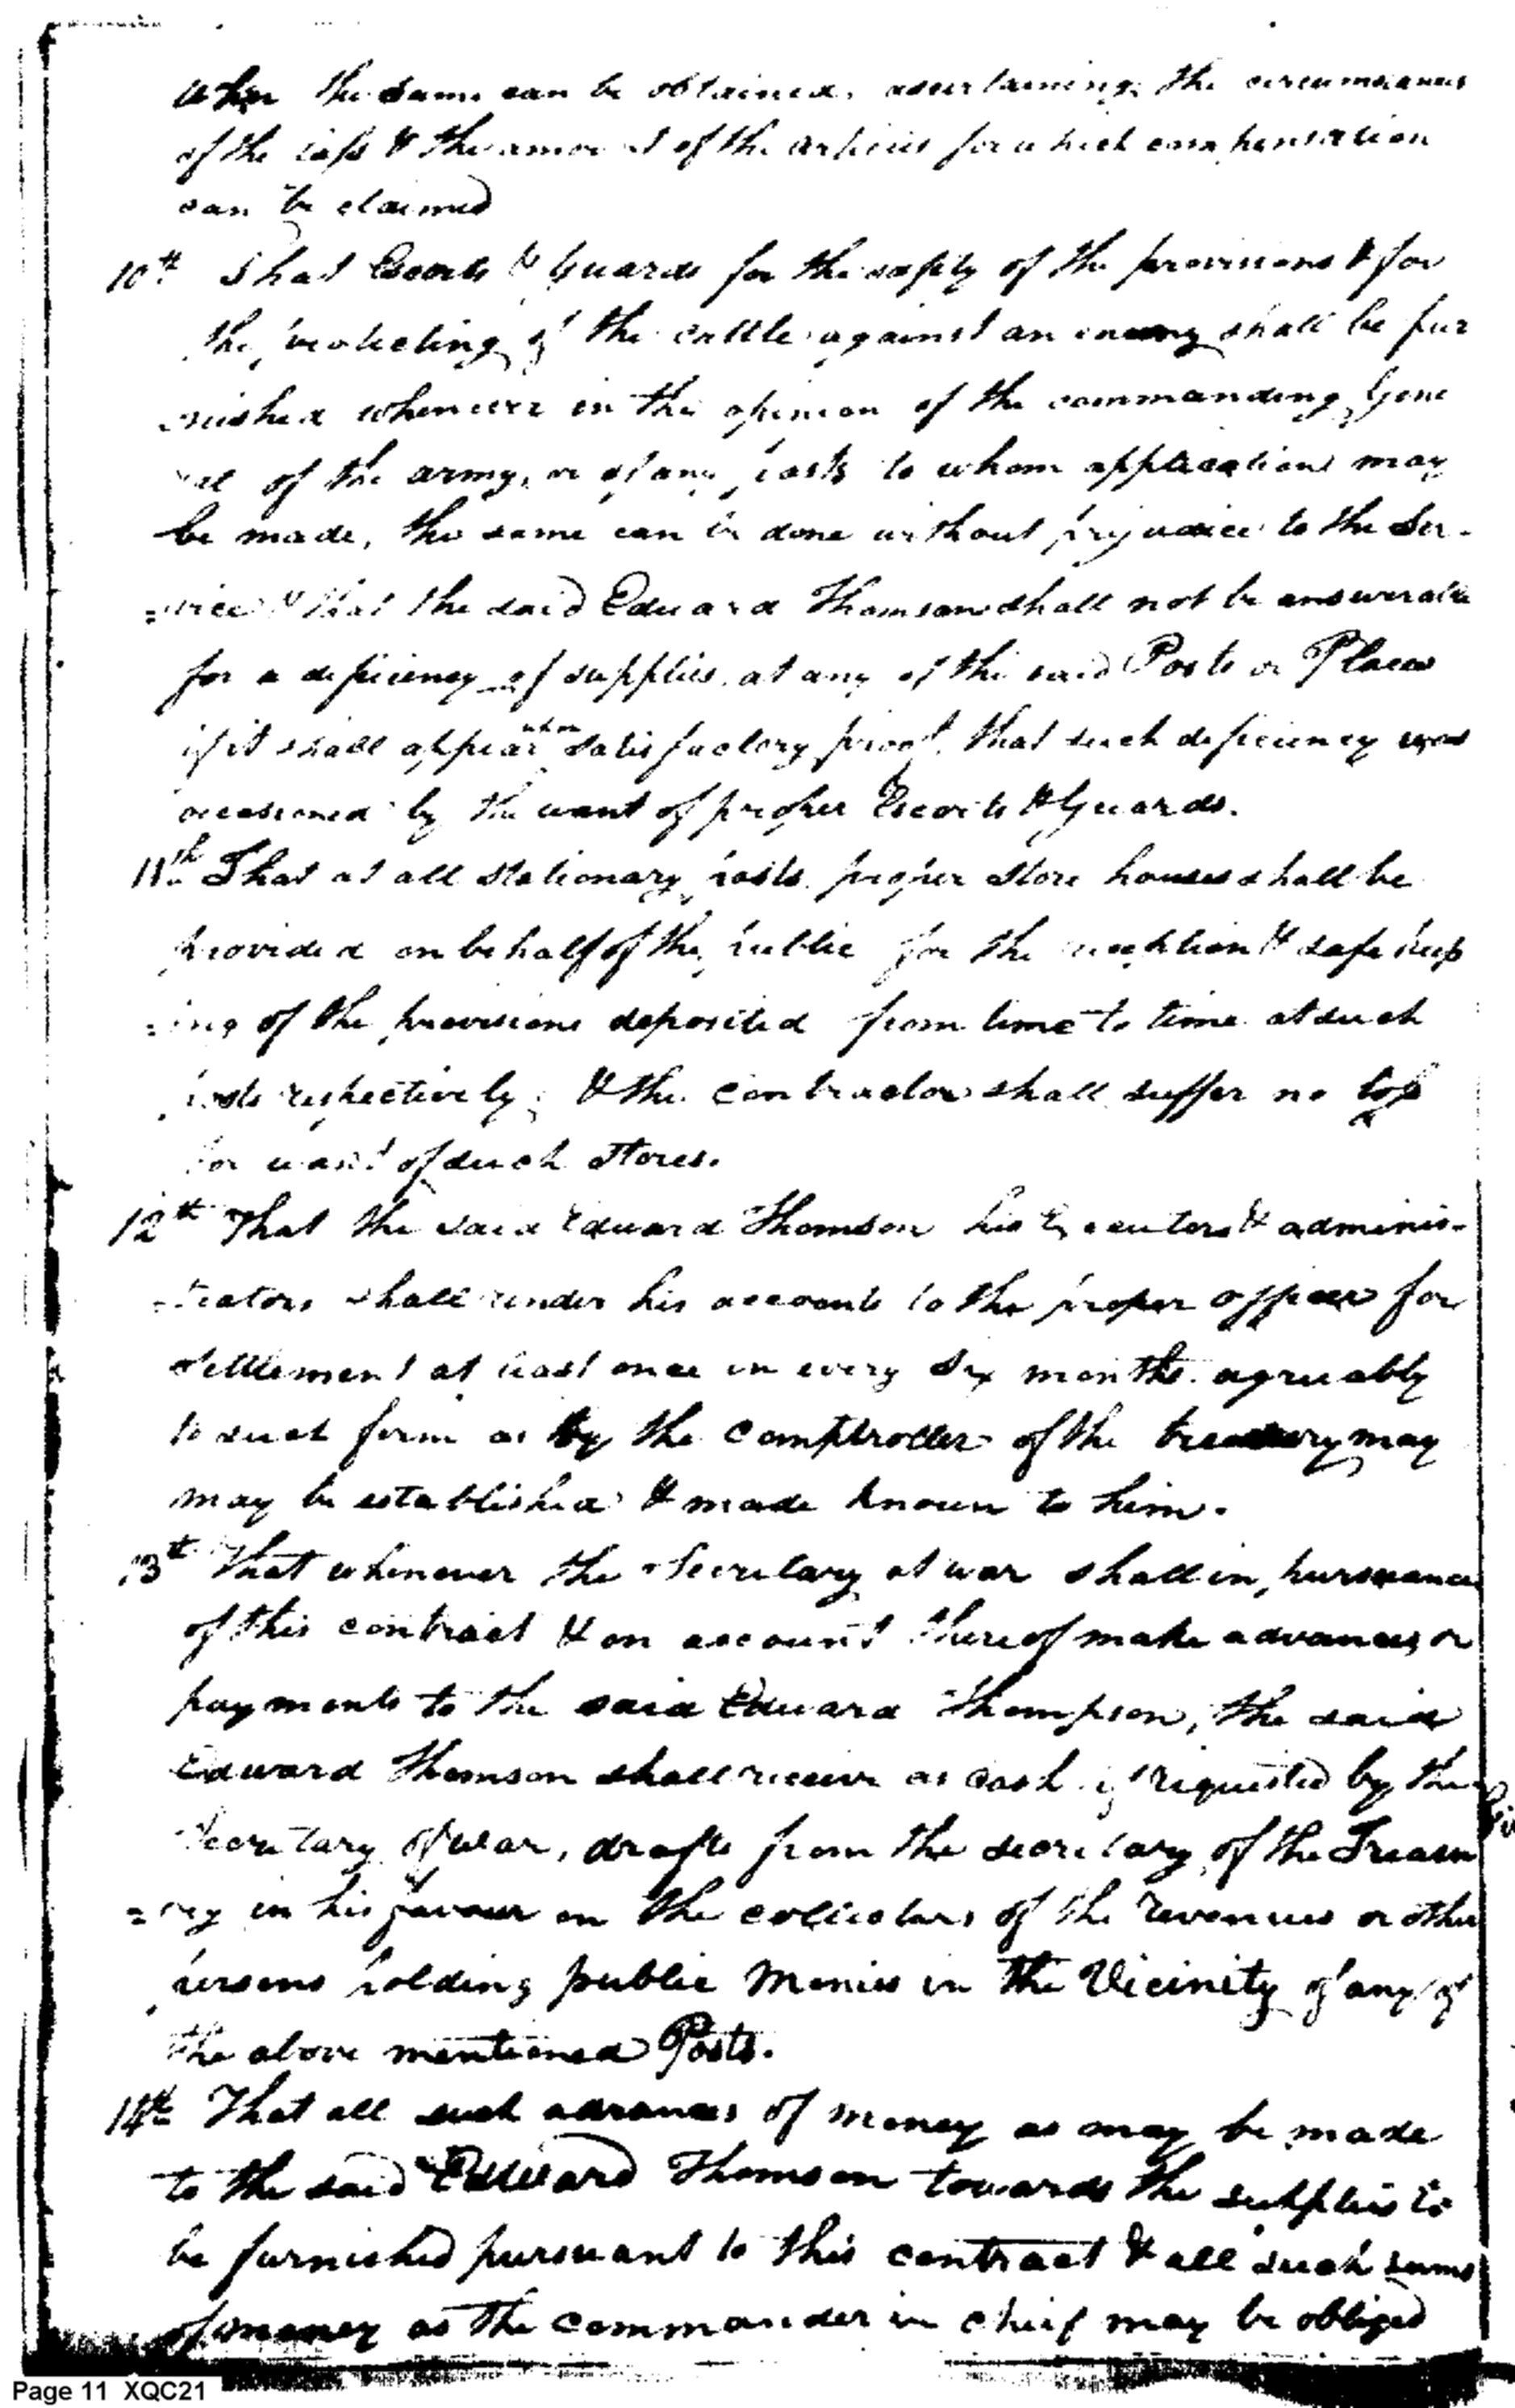 when the same can be obtained, ascertaining the circumstances
of the loss & the amount of the articles for which compensation
can be claimed
10th That Escorts & Guards for the safety of the provisions & for
the protecting of the cattle against an enemy shall be fur
nished whenever in the opinion of the commanding Gene
ral of the army, or of any posts to whom application may
be made, the same can be done without prejudice to the Ser-
=vice & that the said Edward Thomson shall not be answerable
for a deficiency of supplies at any of the said Posts or Places
if it shall appear upon satisfactory proof, that such deficiency was
occasioned by the want of proper Escorts & Guards.
11th That at all stationary posts proper store houses shall be
provided on behalf of the public for the reception & safe keep
=ing of the provisions deposited from time to time at such
posts respectively, & the contractor shall suffer no loss
for want of such stores.
12th That the said Edward Thomson his Executors & adminis-
=trators shall render his accounts to the proper officer for
settlement at least once in every Six months agreeably
to such form as by the comptroller of the treasury may
may be established & made known to him.
13th That whenever the Secretary at war shall in pursuance
of this contract & on account thereof make advances or
payments to the said Edward Thompson, the said
Edward Thomson shall receive as cash if requested by the
Secretary of war, drafts from the secretary of the Treasu
=ry in his favour on the collectors of the revenues or other
persons holding public Monies in the Vicinity of any of
the above mentioned Posts.
14th That all such advances of money as may be made
to the said Edward Thomson towards the supplies to
be furnished pursuant to this contract & all such sums
of money as the commander in chief may be obliged
Page 11 XQC21